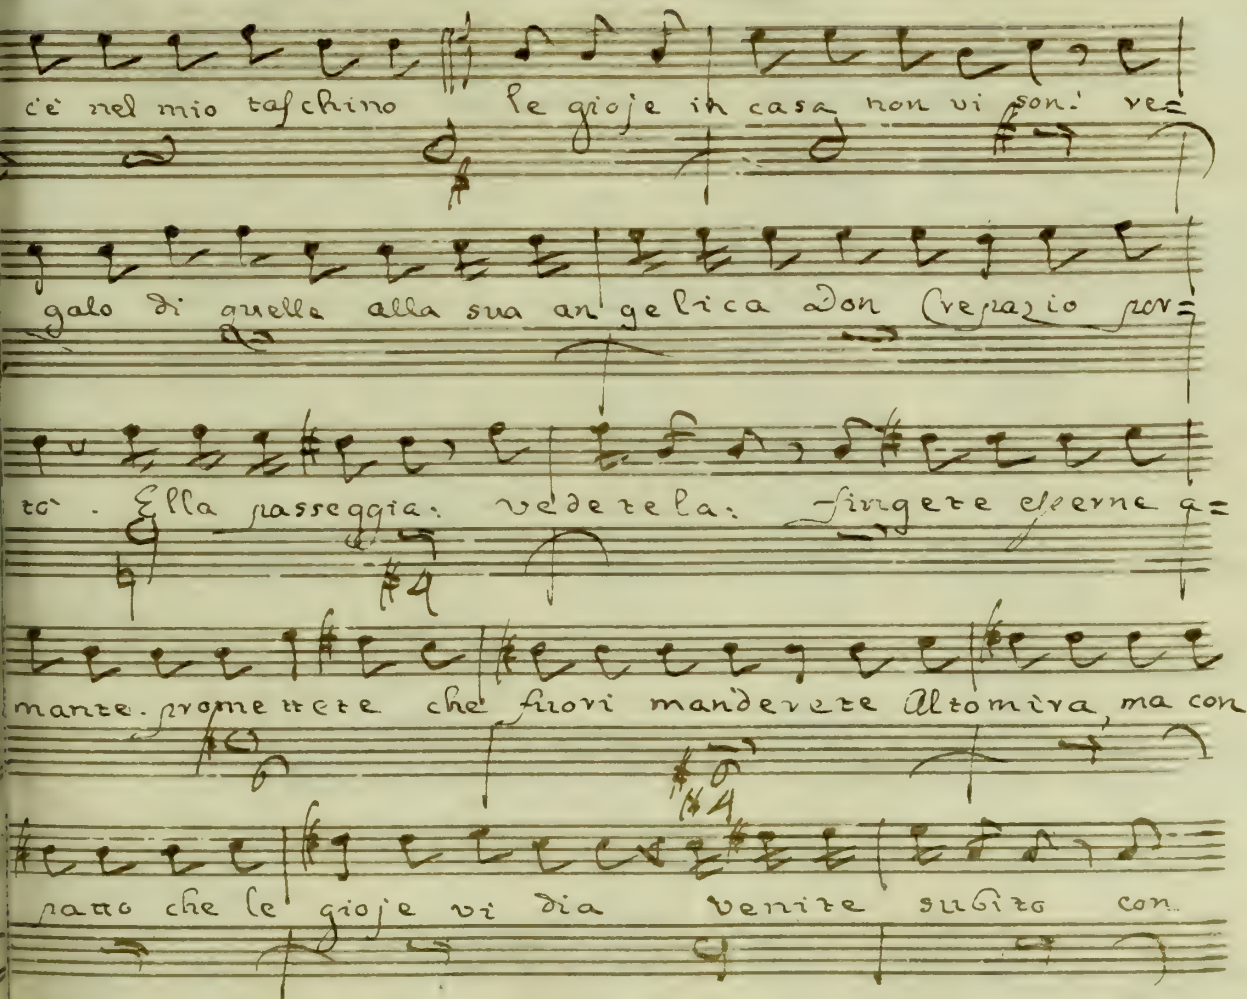 c'è nel mio taschino le gioje in casa non vi son: re=
galo di quelle alla sua angelica Don Crepazio por=
tò. Ella passeggia: vedetela: fingete esserne a=
mante. promettete che fuori manderete Altomira, ma con
patto che le gioje vi dia venite subito con